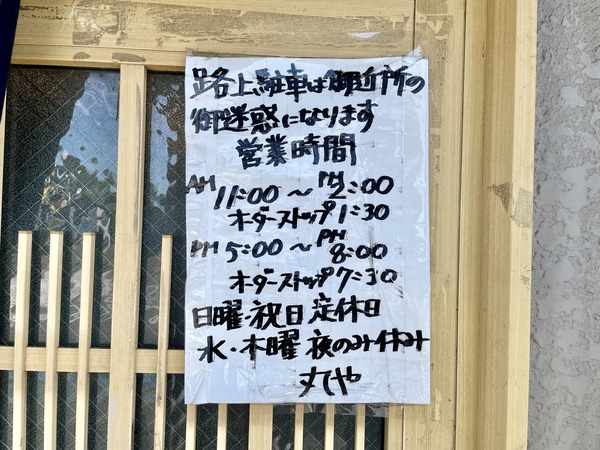 路上駐車は御近所の
御迷惑になります
営業時間
AM 11:00 ～ PM 2:00
オーダーストップ 1:30
PM 5:00 ～ PM 8:00
オーダーストップ 7:30
日曜・祝日 定休日
水・木曜 夜のみ休み